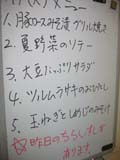 1. 豚ロースみそ漬グリル焼き
2. 夏野菜のソテー
3. 大豆たっぷりサラダ
4. ツルムラサキのおひたし
5. 玉ねぎとしめじのみそ汁
☆昨日のちらしずし
あります。